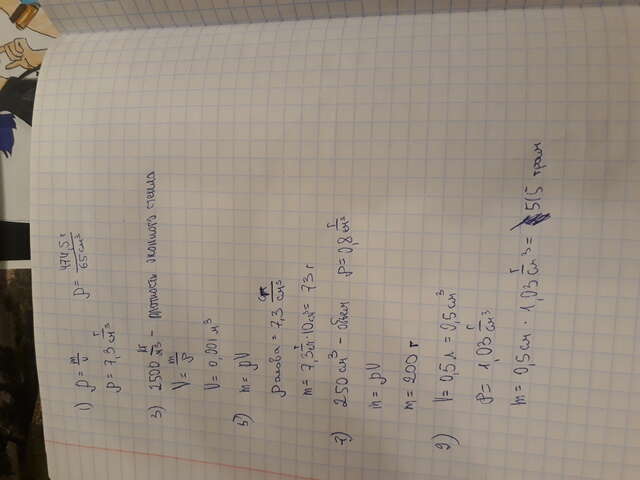 1) ρ = m/v   ρ = 474,5 г/65 см³
ρ = 7,3 г/см³
3) 2500 кг/м³ - плотность оконного стекла
V = m/ρ
V = 0,001 м³
5) m = ρV
ρ олова = 7,3 г/см³
m = 7,3 г/см · 10 см³ = 73 г
7) 250 см³ - объем   ρ = 0,8 г/см³
m = ρV
m = 200 г
9) V = 0,5 л = 0,5 см³
ρ = 1,03 г/см³
m = 0,5 см · 1,03 г/см³ = 515 грам